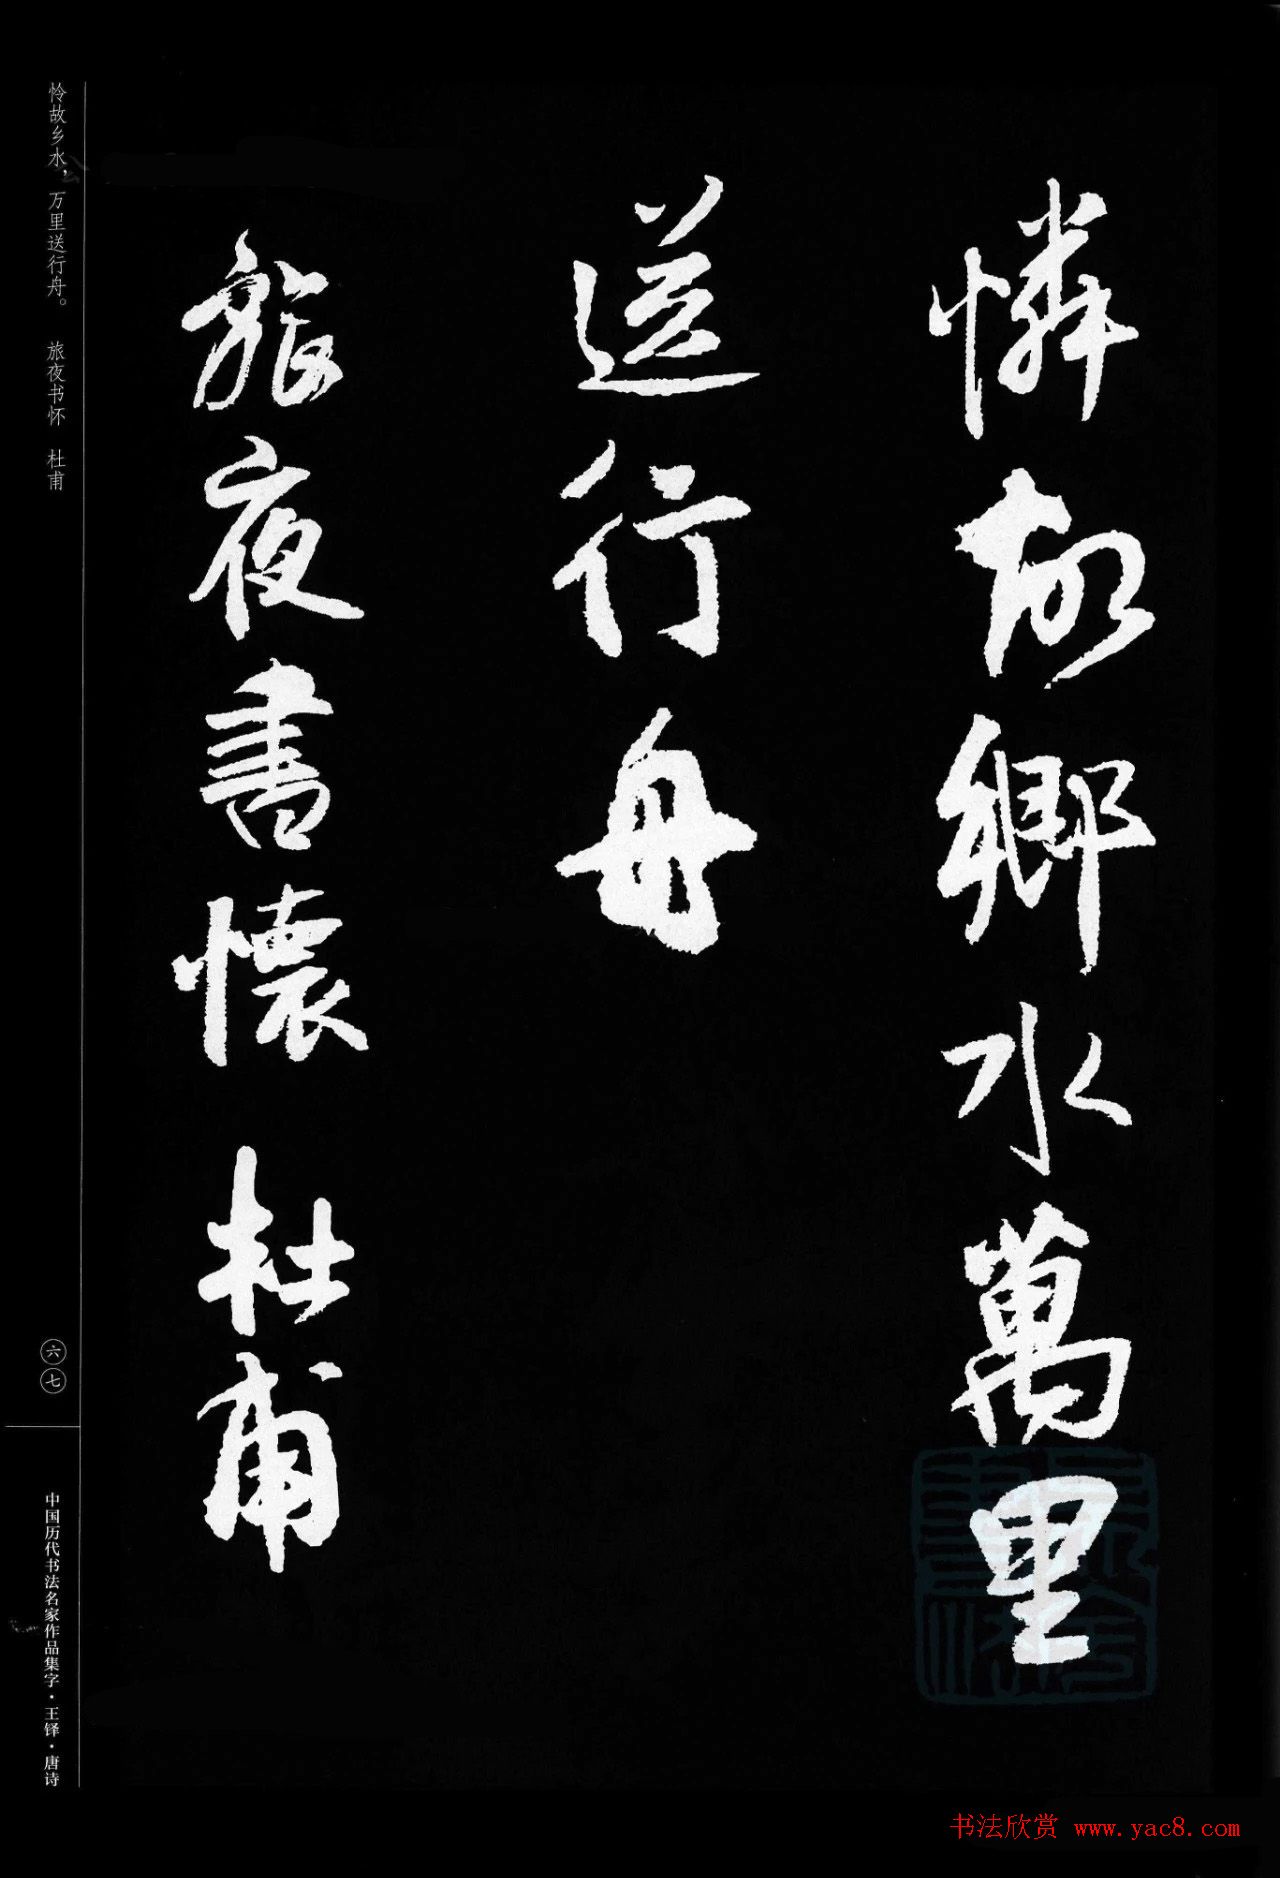 憐故鄉水萬里
送行舟
旅夜書懷 杜甫
怜故乡水，万里送行舟。 旅夜书怀 杜甫
六七
中国历代书法名家作品集字·王铎·唐诗
书法欣赏 www.yac8.com